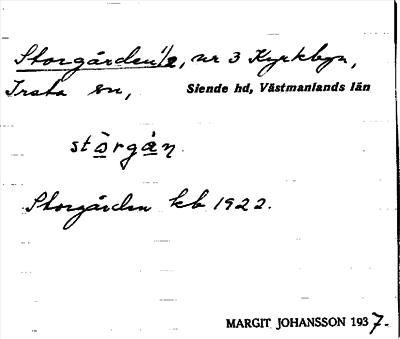 Storgården 1/2, nr 3 Kyrkbyn,
Irsta sn, Siende hd, Västmanlands län
stòrgán.
Storgården kb 1922.
MARGIT JOHANSSON 1937.